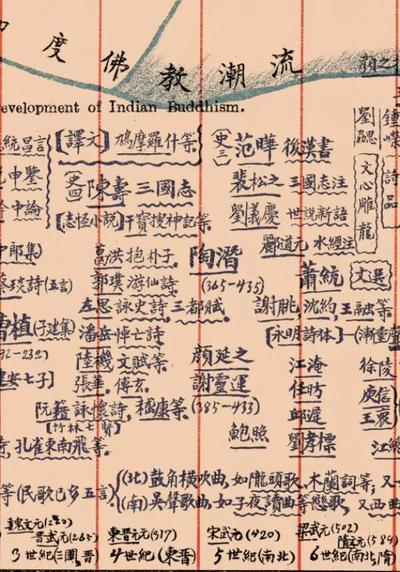 度佛教潮流
evelopment of Indian Buddhism.
顏之推
劉勰
文心雕龍
鍾嶸
詩品
統昌言
【譯文】鳩摩羅什等
史三 范曄 後漢書
申鑒
史四 陳壽 三國志
裴松之 三國志注
中論
【志怪小說】干寶搜神記等
劉義慶 世說新語
酈道元 水經注
中郎集)
葛洪抱朴子。
陶潛
(365-435)
蕭統 文選
琰詩(五言)
郭璞游仙詩
左思詠史詩三都賦。
謝朓 沈約 王融等
【永明詩體】
曹植(子建集)
192-232)
潘岳悼亡詩
陸機文賦等
張華。傅玄。
建安七子】
顏延之
謝靈運
(385-433)
鮑照
江淹
任昉
丘遲
劉孝標
徐陵
庾信
王褒
江總
阮籍詠懷詩,嵇康等。
【竹林七賢】
詩,孔雀東南飛等。
等(民歌已多五言)
(北)鼓角橫吹曲,如隴頭歌、木蘭詞等;又一
(南)吳聲歌曲,如子夜讀曲等戀歌,又西曲
魏文元(220)
晉武元(265)
東晉元元(317)
宋武元(420)
梁武元(502)
隋文元(589)
3世紀(三國,晋)
4世紀(東晋)
5世紀(南北)
6世紀(南北,隋)